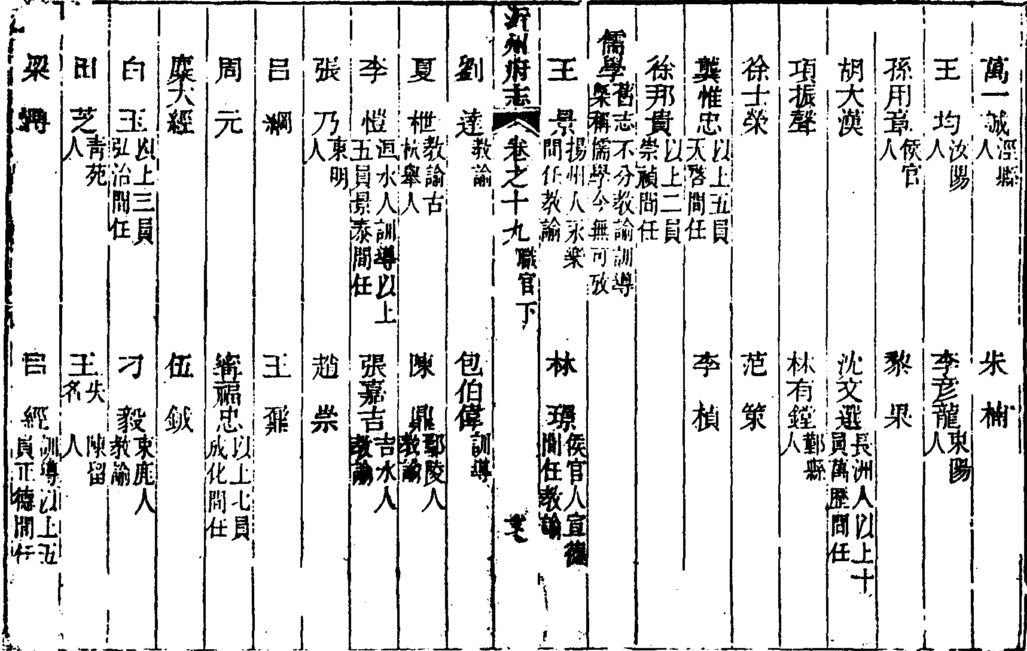 萬一誠涇縣人　朱楠
王均汝陽人　李彥龍東陽人
孫用章侯官人　黎果
胡大漢　沈文選長洲人以上十員萬歷間任
項振聲　林有鏜鄞縣人
徐士榮　范策
龔惟忠以上五員天啓間任　李楨
徐邦貴以上二員崇禎間任
儒學舊志不分教諭訓導槩稱儒學今無可攷
王景揚州人永樂間任教諭　林璟侯官人宣德間任教諭
沂州府志　卷之十九　職官下
劉逵教諭　包伯偉訓導
夏枻教諭古杭舉人　陳鼎鄢陵人教諭
李愷洹水人訓導以上五員景泰間任　張嘉吉吉水人教諭
張乃東明人　趙崇
呂綱　王鼐
周元　甯福忠以上七員成化間任
糜大經　伍鉞
白玉以上三員弘治間任　刁毅東鹿人教諭
田芝青苑人　王失名陳留人
梁　呂經訓導以上五員正德間任